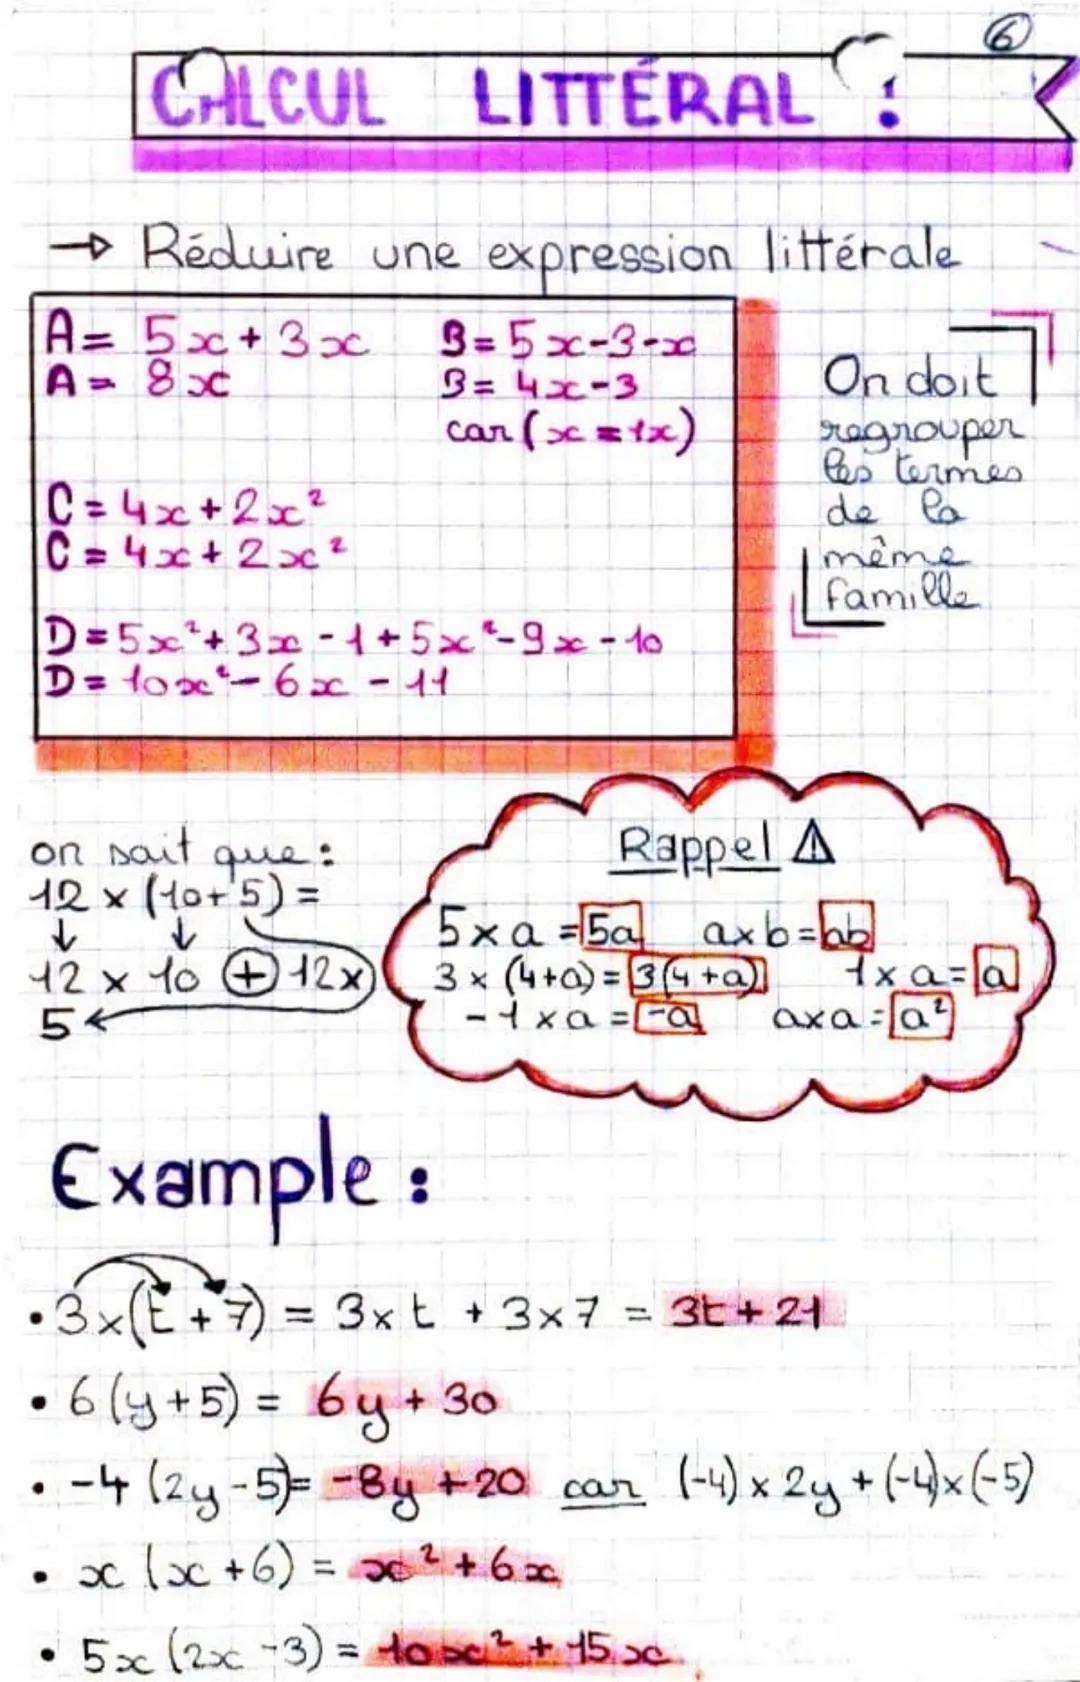 6
CALCUL LITTÉRAL :
→ Réduire une expression littérale
A = 5x + 3x
A = 8x
B = 5x-3-x
B = 4x-3
car (x = 1x)
C = 4x + 2x²
C = 4x + 2x²
D = 5x² + 3x - 1 + 5x² - 9x - 10
D = 10x² - 6x - 11
On doit
regrouper
les termes
de la
même
famille
on sait que :
12 x (10+5) =
↓ ↓
12 x 10 + 12x
5 ←
Rappel ⚠
5 x a = 5a axb = ab
3 x (4+a) = 3(4+a) 1 x a = a
-1 x a = -a axa = a²
Example :
• 3x(t+7) = 3xt + 3x7 = 3t + 21
• 6(y+5) = 6y + 30
• -4 (2y-5) = -8y +20 car (-4) x 2y + (-4)x(-5)
• x (x+6) = x² + 6x
• 5x (2x-3) = 10x² + 15x